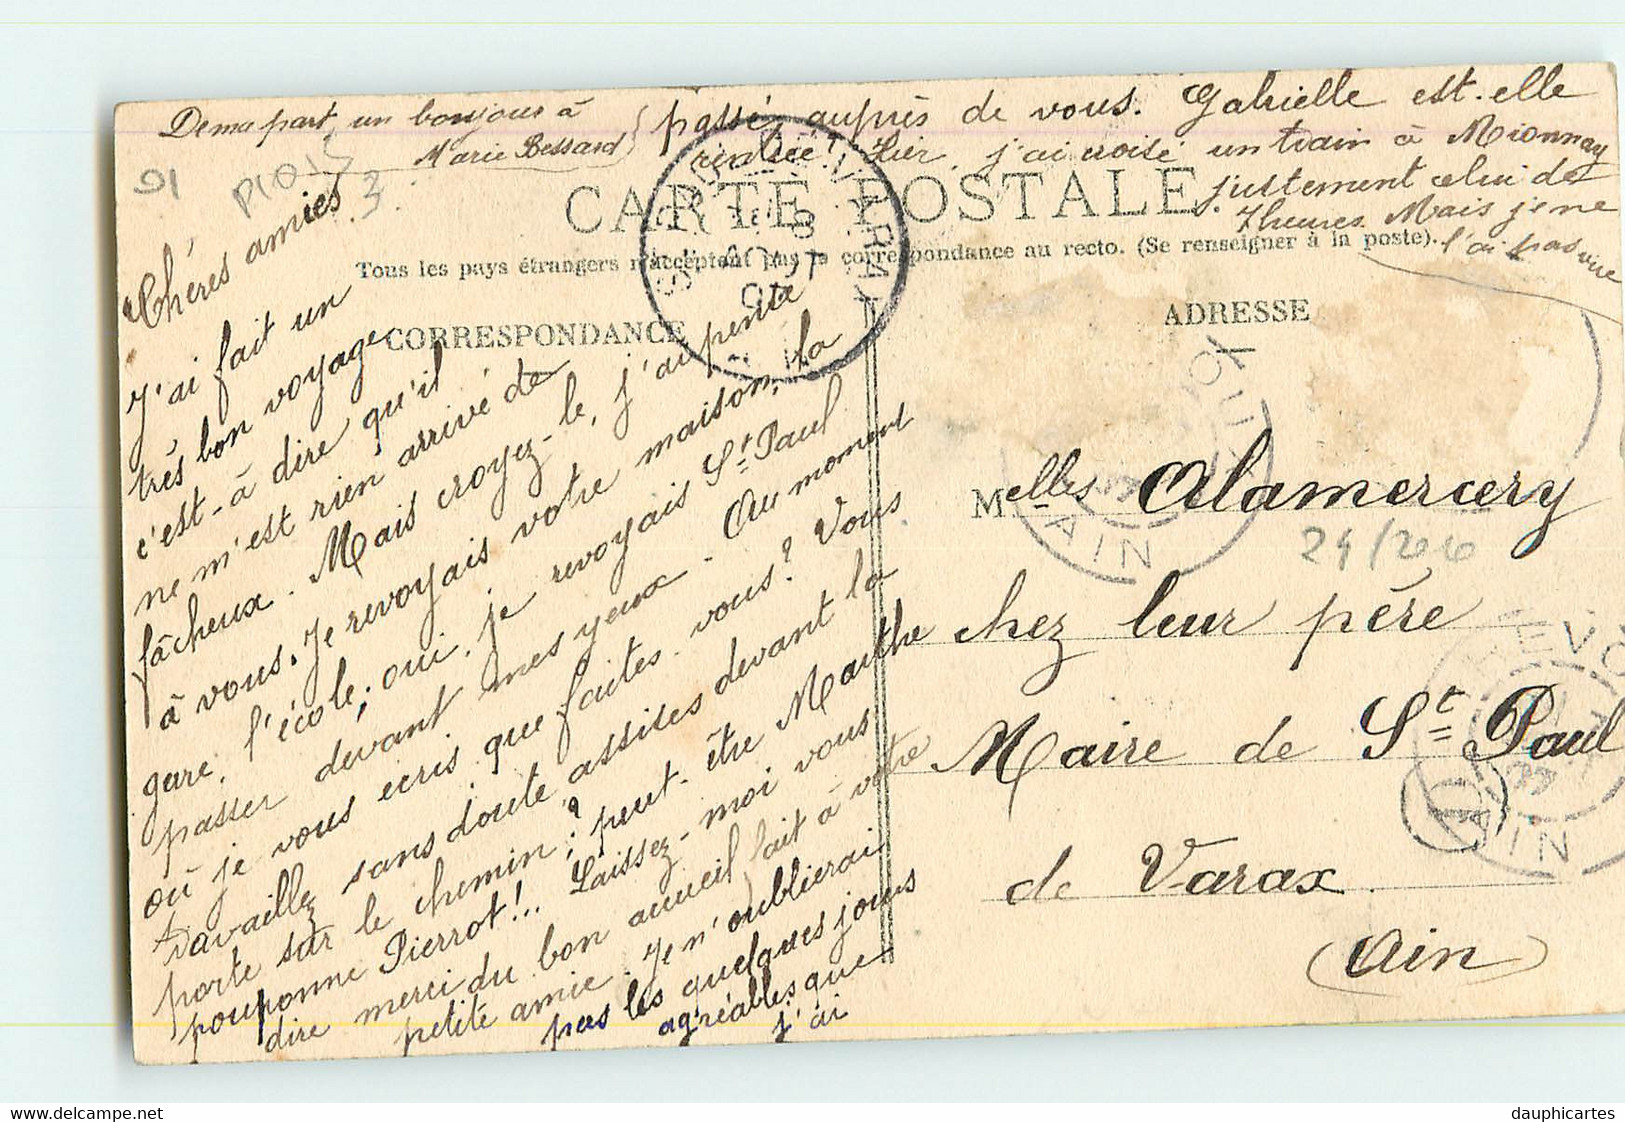 De ma part, un bonjour à
Marie Bessard
91
3
CARTE POSTALE
Tous les pays étrangers n'acceptent pas la correspondance au recto. (Se renseigner à la poste).
CORRESPONDANCE
Chères amies
J'ai fait un
très bon voyage
c'est-à dire qu'il
ne m'est rien arrivé de
fâcheux. Mais croyez-le, j'ai pensé
à vous. Je revoyais votre maison, la
gare, l'école; oui, je revoyais St Paul
passer devant mes yeux. Au moment
où je vous écris que faites-vous? Vous
travaillez sans doute assises devant la
porte sur le chemin; peut-être Marthe
pouponne Pierrot!.. Laissez-moi vous
dire merci du bon accueil fait à votre
petite amie. Je n'oublierai
pas les quelques jours
agréables que
j'ai
passés auprès de vous. Gabrielle est-elle
rentrée? Hier, j'ai croisé un train à Mionnay
justement celui de
7 heures. Mais je ne
l'ai pas vue
ADRESSE
Melles Alamercery
24/206
chez leur père
Maire de St Paul
de Varax
(Ain)
AIN
TREVOUX
AIN
dauphicartes